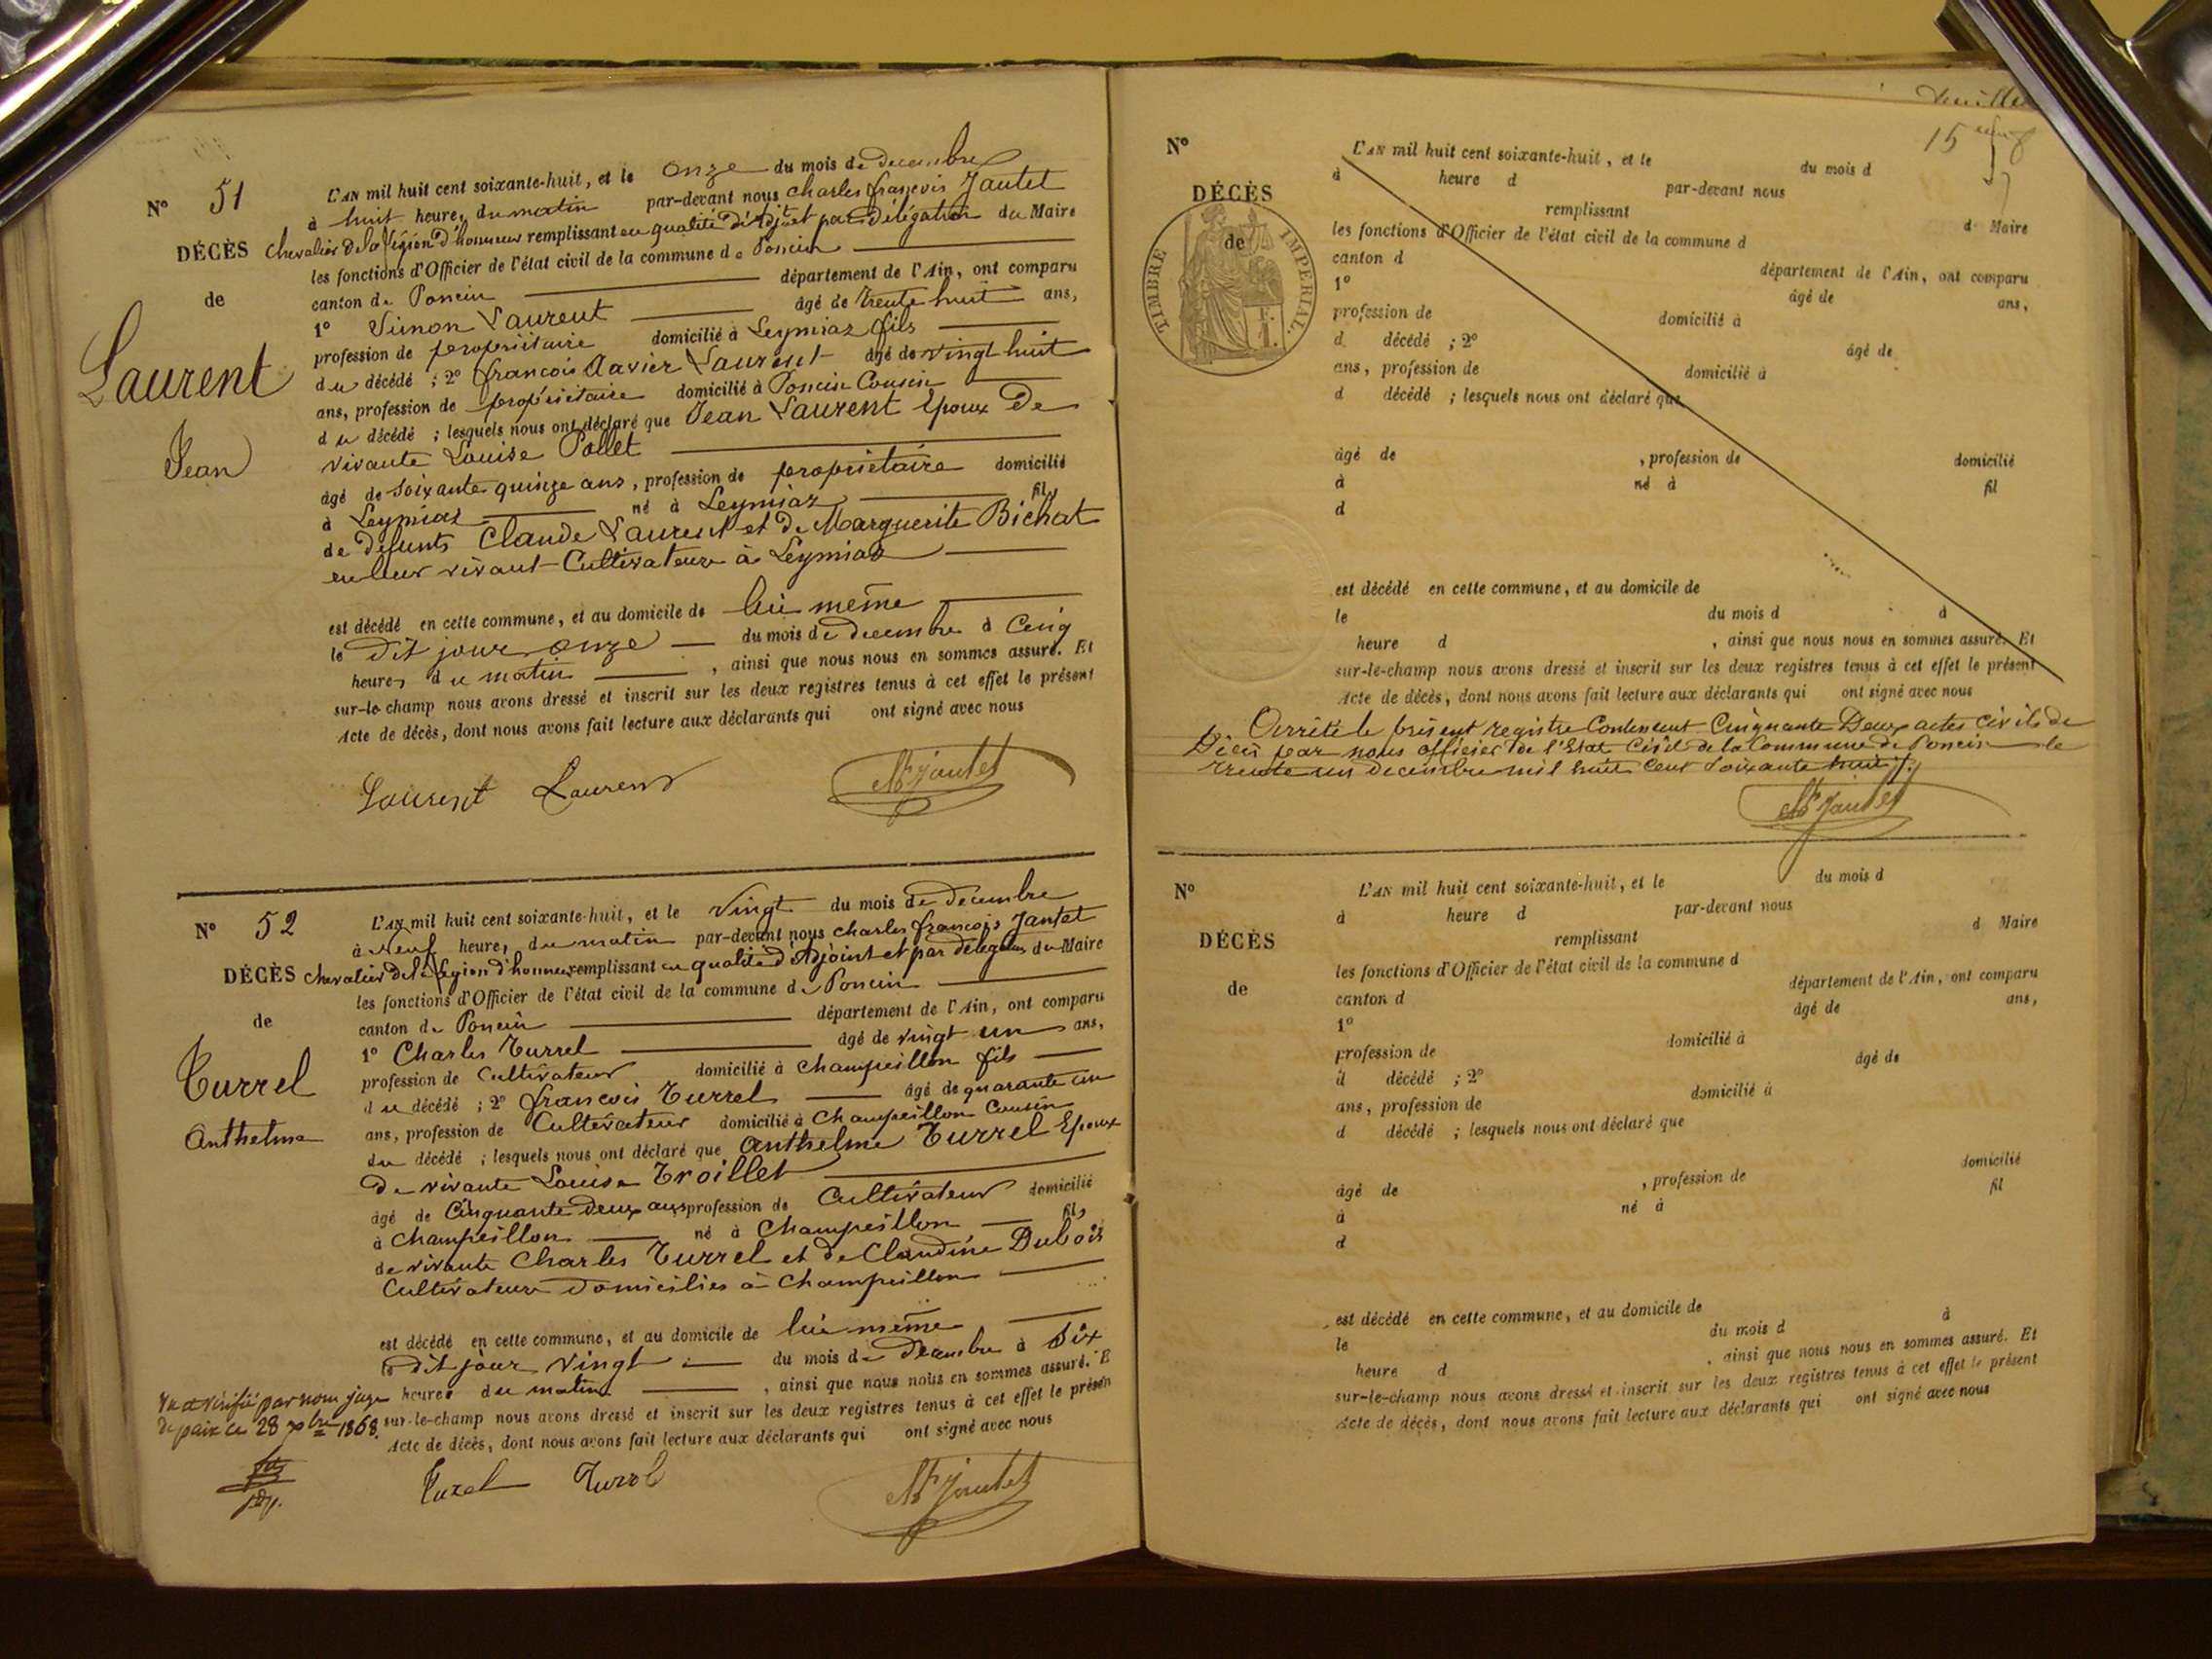 N° 51
L'AN mil huit cent soixante-huit, et le onze du mois de decembre
à huit heures du matin par-devant nous charles françois Jantet
DÉCÈS chevalier de la légion d'honneur remplissant en qualité d'Adjt et par délégation du Maire
les fonctions d'Officier de l'état civil de la commune de Poncin
de
canton de Poncin département de l'Ain, ont comparu
1° Simon Laurent âgé de trente huit ans,
Laurent
profession de propriétaire domicilié à Leymiaz fils
du décédé ; 2° françois Xavier Laurent âgé de vingt huit
ans, profession de propriétaire domicilié à Poncin Cousin
Jean
du décédé ; lesquels nous ont déclaré que Jean Laurent Epoux de
vivante Louise Pollet
âgé de soixante quinze ans, profession de propriétaire domicilié
à Leymiaz né à Leymiaz fils
de defunts Claude Laurent et de Marguerite Bichat
en leur vivant Cultivateurs à Leymiaz
est décédé en cette commune, et au domicile de lui même
le dit jour onze du mois de decembre à Cinq
heures du matin , ainsi que nous nous en sommes assuré. Et
sur-le-champ nous avons dressé et inscrit sur les deux registres tenus à cet effet le présent
Acte de décès, dont nous avons fait lecture aux déclarants qui ont signé avec nous
Laurent Laurent Jantet
N° 52
L'AN mil huit cent soixante-huit, et le Vingt du mois de decembre
à Neuf heures du matin par-devant nous charles françois Jantet
DÉCÈS chevalier de la légion d'honneur remplissant en qualité d'Adjoint et par délégation du Maire
les fonctions d'Officier de l'état civil de la commune de Poncin
de
canton de Poncin département de l'Ain, ont comparu
1° Charles Turrel âgé de vingt un ans,
Turrel
profession de Cultivateur domicilié à Champeillon fils
du décédé ; 2° françois Turrel âgé de quarante un
Anthelme
ans, profession de Cultivateur domicilié à Champeillon Cousin
du décédé ; lesquels nous ont déclaré que Anthelme Turrel Epoux
de vivante Louise Troillet
âgé de Cinquante deux ans, profession de Cultivateur domicilié
à Champeillon né à Champeillon fils
de vivants Charles Turrel et de Claudine Dubois
Cultivateurs domiciliés à Champeillon
est décédé en cette commune, et au domicile de lui même
le dit jour Vingt du mois de decembre à six
heures du matin , ainsi que nous nous en sommes assuré. E
sur-le-champ nous avons dressé et inscrit sur les deux registres tenus à cet effet le présen
Acte de décès, dont nous avons fait lecture aux déclarants qui ont signé avec nous
Vu et vérifié par nous juge
de paix ce 28 xbre 1868.
Turel Turrel Jantet
15
N°
L'AN mil huit cent soixante-huit, et le du mois d
à heure d par-devant nous
DÉCÈS
remplissant d Maire
de
les fonctions d'Officier de l'état civil de la commune d
TIMBRE IMPÉRIAL.
canton d département de l'Ain, ont comparu
1° âgé de ans,
profession de domicilié à
d décédé ; 2° âgé de
ans, profession de domicilié à
d décédé ; lesquels nous ont déclaré que
âgé de , profession de domicilié
à né à fil
d
est décédé en cette commune, et au domicile de
le du mois d à
heure d , ainsi que nous nous en sommes assuré. Et
sur-le-champ nous avons dressé et inscrit sur les deux registres tenus à cet effet le présent
Acte de décès, dont nous avons fait lecture aux déclarants qui ont signé avec nous
Arrêté le présent registre Contenant Cinquante Deux actes civils de
Décès par nous officier de l'Etat Civil de la Commune de Poncin le
trente un decembre mil huit cent soixante huit
Jantet
N°
L'AN mil huit cent soixante-huit, et le du mois d
à heure d par-devant nous
DÉCÈS
remplissant d Maire
les fonctions d'Officier de l'état civil de la commune d
de
canton d département de l'Ain, ont comparu
1° âgé de ans,
profession de domicilié à
d décédé ; 2° âgé de
ans, profession de domicilié à
d décédé ; lesquels nous ont déclaré que
âgé de , profession de domicilié
à né à fil
d
est décédé en cette commune, et au domicile de
le du mois d à
heure d , ainsi que nous nous en sommes assuré. Et
sur-le-champ nous avons dressé et inscrit sur les deux registres tenus à cet effet le présent
Acte de décès, dont nous avons fait lecture aux déclarants qui ont signé avec nous